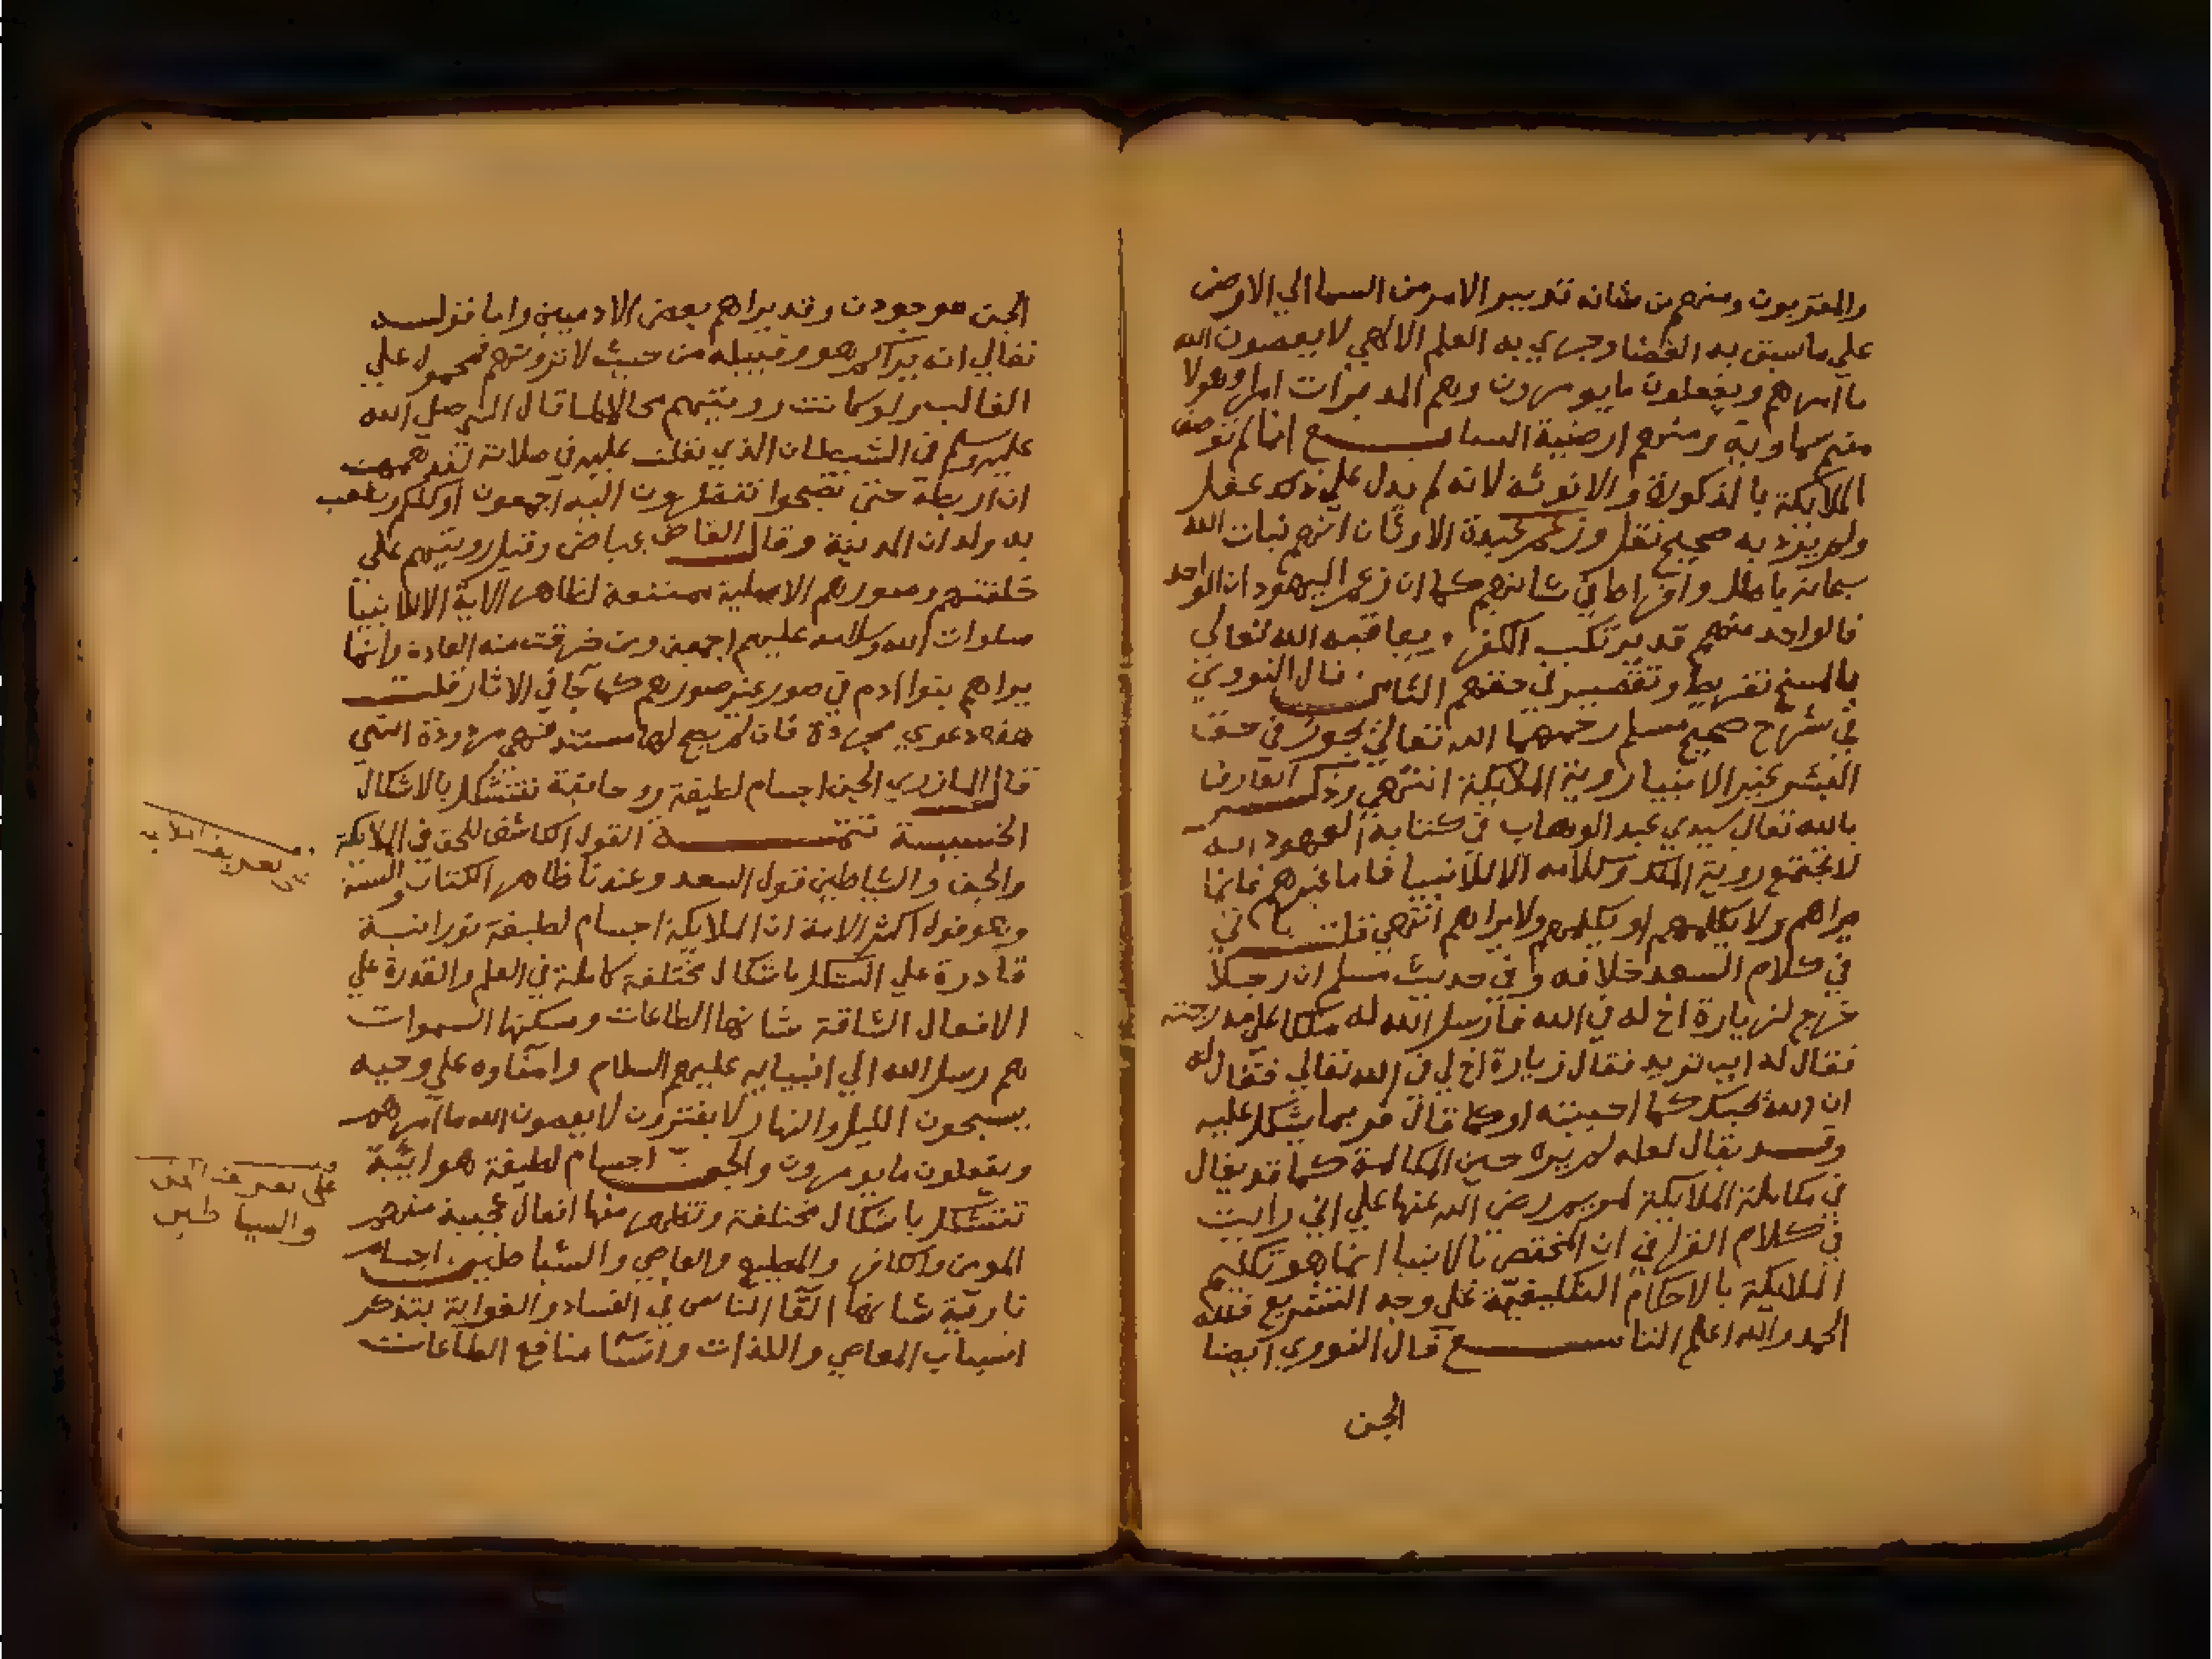 والمقربون ومنهم من شانه تدبير الامر من السما الي الارض
علي ما سبق به القضا وجري به القلم الالهي لا يعصون الله
ما امرهم ويفعلون ما يومرون وهم المدبرات امرا وهولا
منهم سماوية ومنهم ارضية السابع انما لم توصف
الملايكة بالذكورة والانوثة لانه لم يدل علي ذلك عقل
ولم يرد به صحيح نقل وزعم عبدة الاوثان انهم بنات الله
سبحانه باطل وافراط في شانهم كما ان زعم اليهود ان الواحد
فالواحد منهم قد يرتكب الكفر ويعاقبه الله تعالي
بالمسخ تفريط وتقصير في حقهم الثامن قال النووي
في شرح صحيح مسلم رحمهما الله تعالي يجوز في حق
البشر غير الانبيا روية الملايكة انتهي وذكر العارف
بالله تعالي سيدي عبد الوهاب في كتابه العهود انه
لا تجتمع روية الملك وكلامه الا للانبيا فاما غيرهم فانما
يراهم ولا يكلمهم او يكلمهم ولا يراهم انتهي قلت ياتي
في كلام السعد خلافه وفي حديث مسلم ان رجلا
خرج لزيارة اخ له في الله فارسل الله له ملكا علي مدرجته
فقال له اين تريد فقال زيارة اخ لي في الله تعالي فقال له
ان الله يحبك كما احببته او كما قال فربما يشكل عليه
وقد يقال لعله لم يره حين المكالمة كما قد يقال
في مكالمة الملايكة لمريم رضي الله عنها علي اني رايت
في كلام القرافي ان المختص بالانبيا انما هو تكليم
الملايكة بالاحكام التكليفية علي وجه التشريع فلله
الحمد والله اعلم التاسع قال النووي ايضا
الجن
الجن موجودن وقد يراهم بعض الادميين واما قوله
تعالي انه يراكم هو وقبيله من حيث لا ترونهم فمحمول علي
الغالب ولو كانت رويتهم محالا لما قال النبي صلي الله
عليه وسلم في الشيطان الذي تفلت عليه في صلاته لقد هممت
ان اربطه حتي تصبحوا تنظرون اليه اجمعون او كلكم ويلعب
به ولدان المدينة وقال القاضي عياض وقيل رويتهم علي
خلقتهم وصورهم الاصلية ممتنعة لظاهر الاية الا للانبيا
صلوات الله وسلامه عليهم اجمعين ومن خرقت منه العادة وانما
يراهم بنوا ادم في صور غير صورهم كما جا في الاثار قلت
هذه دعوي مجردة فان لم يصح لها مستند فهي مردودة انتهي
قال المازري الجن اجسام لطيفة روحانية تتشكل بالاشكال
الخسيسة تتمة القول الكاشف للحق في الملايكة
والجن والشياطين قول السعد وعندنا ظاهر الكتاب والسنة
وهو قول اكثر الامة ان الملايكة اجسام لطيفة نورانية
قادرة علي التشكل باشكال مختلفة كاملة في العلم والقدرة علي
الافعال الشاقة شانها الطاعات ومسكنها السموات
هم رسل الله الي انبيايه عليهم السلام وامناوه علي وحيه
يسبحون الليل والنهار لا يفترون لا يعصون الله ما امرهم
ويفعلون ما يومرون والجن اجسام لطيفة هوائية
تتشكل باشكال مختلفة وتظهر منها افعال عجيبة منهم
المومن والكافر والمطيع والعاصي والشياطين اجسام
نارية شانها القا الناس في الفساد والغواية بتذكر
اسباب المعاصي واللذات وانسا منافع الطاعات
علي تعريف الملايكه
علي تعريف الجن
والشياطين